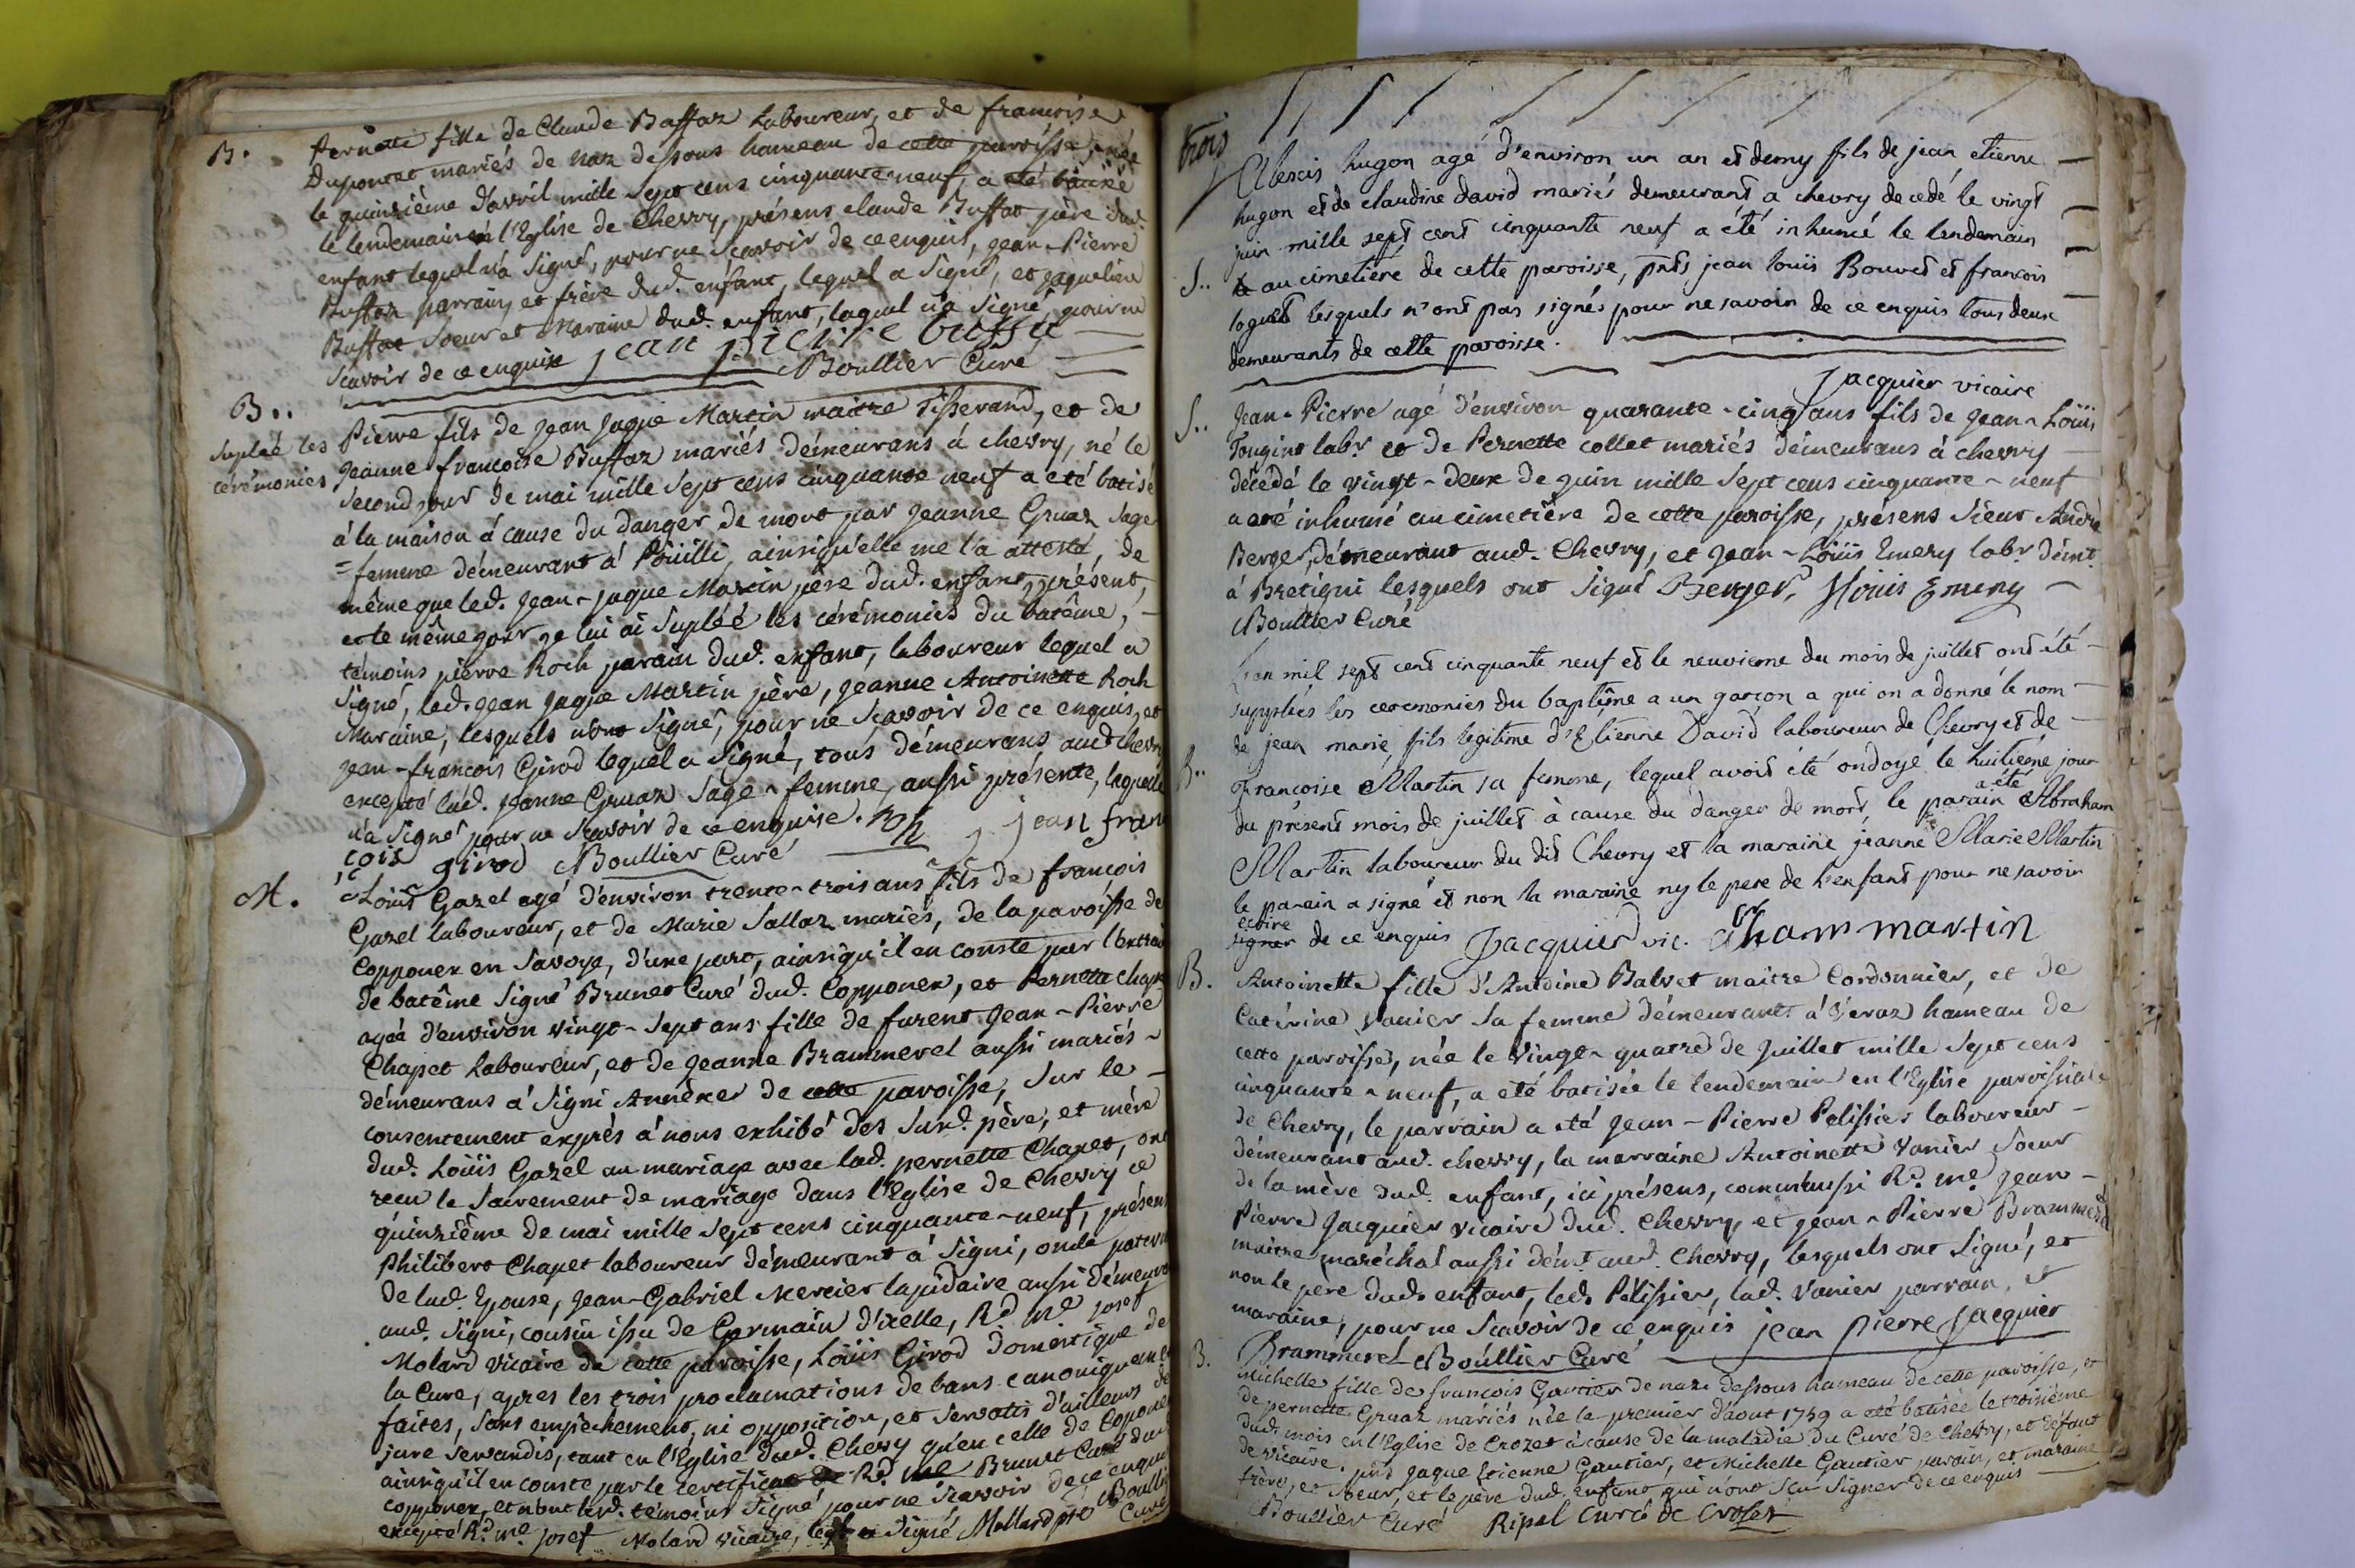 B. Pernette fille de Claude Baffaz Laboureur, et de francoise
Dupontet mariés de naz dessous hameau de cette paroisse, née
le quinzième d'avril mille sept cens cinquante neuf, a été batisée
le lendemain en l'Eglise de Chevry, présens claude Buffat père dud.
enfant lequel n'a signé, pour ne scavoir de ce enquis, jean-Pierre
Buffaz parrain, et frère dud. enfant, lequel a signé, et jaqueline
Buffat soeur et Maraine dud. enfant, laquel n'a signé, pour ne
scavoir de ce enquise jean pierre buffa
Boullier Curé
B..
Suplée les
cérémonies
Pierre fils de Jean Jaque Martin maitre Tisserand, et de
Jeanne francoise Buffaz mariés démeurans à chevry, né le
second jour de mai mille sept cens cinquante neuf a eté batisé
à la maison à cause du danger de mort par Jeanne Gruaz sage
=femme démeurant à Poüilli, ainsi qu'elle me l'a attesté, de
même que led. Jean-Jaque Martin père dud. enfant, présent,
et le même jour je lui ai supléé les cérémonies du batême,
témoins pierre Roch parain dud. enfant, laboureur lequel a
signé, led. Jean Jaque Martin père, Jeanne Antoinette Roch
Maraine, lesquels n'ont signé, pour ne scavoir de ce enquis, et
Jean-francois Girod lequel a signé, tous démeurans aud. chevry
excepté lad. Jeanne Gruaz sage-femme, aussi présente, laquelle
n'a signé pour ne scavoir de ce enquise. Roh jean fran
cois girod Boullier Curé
M. Loüis Gazel agé d'environ trente-trois ans fils de francois
Gazel laboureur, et de Marie Sallaz mariés, de la paroisse de
Copponex en Savoye, d'une part, ainsi qu'il en conste par l'extrait
de batême signé Brunet Curé dud. Copponex, et Pernette Chapet
agée d'environ vingt-sept ans fille de furent Jean-Pierre
Chapet Laboureur, et de Jeanne Brammerel aussi mariés
démeurans à Signi Annexe de cette paroisse, sur le
consentement exprés à nous exhibé des susd. père, et mère
dud. Loüis Gazel au mariage avec lad. pernette Chapet, ont
recu le sacrement de mariage dans l'Eglise de Chevry ce
quinzième de mai mille sept cens cinquante-neuf, présens
Philibert Chapet laboureur démeurant à Signi, oncle paternel
de lad. Epouse, Jean-Gabriel Mercier lapidaire aussi démeurant
aud. Signi, cousin issu de Germain d'icelle, Rd. me josef
Molard Vicaire de cette paroisse, Loüis Girod Domestique de
la Cure, apres les trois proclamations de bans canoniquement
faites, sans empêchement, ni opposition, et servatis d'ailleurs de
jure servandis, tant en l'Eglise dud. Chevry qu'en celle de Coponex
ainsi qu'il en conste par le certificat de Rd. me Brunet Curé dud.
copponex, et n'ont lesd. témoins signé, pour ne scavoir de ce enquis
excepté Rd. me josef Molard Vicaire, leql a signé Mollard ptre Boullier
Curé
trois
S.. Alexis hugon agé d'environ un an et demy fils de jean etienne
hugon et de claudine david mariés demeurant a chevry decedé le vingt
juin mille sept cent cinquante neuf a été inhumé le lendemain
au cimetière de cette paroisse, pnts jean louis Bouvet et francois
loguet lesquels n'ont pas signés pour ne savoir de ce enquis tous deux
demeurants de cette paroisse.
Jacquier vicaire
S.. Jean-Pierre agé d'environ quarante-cinq ans fils de Jean-Loüis
Fougint labr. et de Pernette collet mariés démeurans à chevry
décédé le vingt-deux de juin mille sept cens cinquante-neuf
a été inhumé au cimetière de cette paroisse, présens Sieur André
Berger démeurant aud. Chevry, et Jean-Loüis Emery labr. démt.
à Bretigni lesquels ont signé Berger, J louis Emery
Boullier Curé
L'an mil sept cent cinquante neuf et le neuvieme du mois de juillet ont été
suppléés les ceremonies du baptême a un garçon a qui on a donné le nom
B.. de jean marie, fils legitime d'Etienne David laboureur de Chevry et de
Françoise Martin sa femme, lequel avoit été ondoyé le huitième jour
du présent mois de juillet à cause du danger de mort, le parain a été Abraham
Martin laboureur du dit Chevry et la maraine jeanne Marie Martin
le parain a signé et non la maraine ny le pere de l'enfant pour ne savoir
ecrire
signer de ce enquis Jacquier vic. abram martin
B. Antoinette fille d'Antoine Balvet maitre Cordonnier, et de
Catérine Vanier sa femme démeurants à Veraz hameau de
cette paroisse, née le vingt-quatre de juillet mille sept cens
cinquante-neuf, a eté batisée le lendemain en l'Eglise paroissiale
de Chevry, le parrain a eté Jean-Pierre Pelissier laboureur
démeurant aud. chevry, la marraine Antoinette Vanier soeur
de la mère dud. enfant, ici présens, comm'aussi Rd. me Jean-
Pierre Jacquier vicaire dud. Chevry, et Jean-Pierre Brammerel
maitre maréchal aussi démt. aud. Chevry, lesquels ont signé, et
non le père dud. enfant, led. Pélissier, lad. Vanier parrain, et
maraine, pour ne scavoir de ce enquis jean pierre Jacquier
Brammerel Boullier Curé
B. Michelle fille de francois Gautier de naz dessous hameau de cette paroisse, et
de pernette Gruaz mariés née le premier d'aout 1759 a eté batisée le troisième
dud. mois en l'Eglise de Crozet à cause de la maladie du Curé de Chevry, et défaut
de vicaire. pnts Jaque Etienne Gautier, et Michelle Gautier parain, et maraine
frère, et soeur, et le père dud. enfant qui n'ont scu signer de ce enquis
Boullier Curé Ripal curé de Crozet